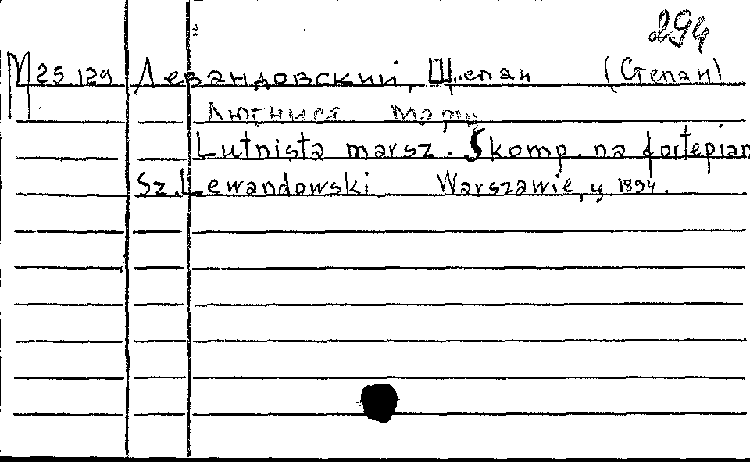 294
М 25.129 Левандовский, Щепан (Степан)
Лютниста марш
Lutnista marsz. Skomp. na fortepian
Sz. Lewandowski Warszawie, 1894.